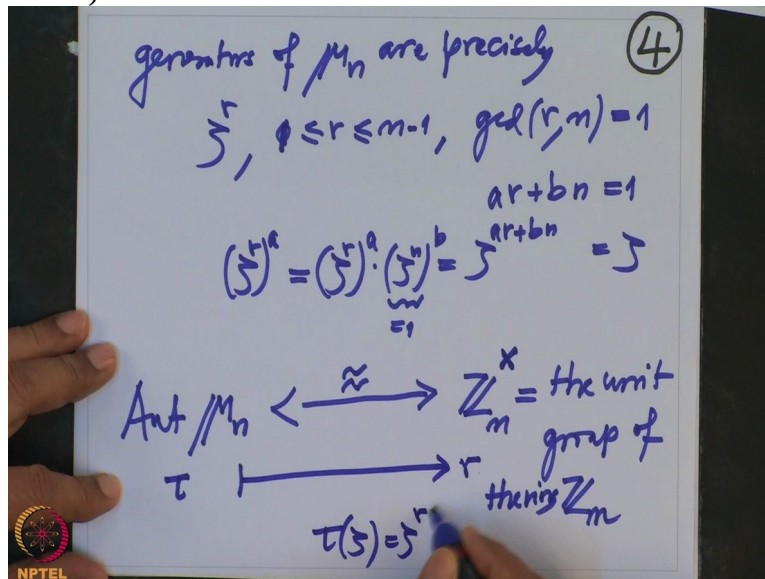 ④
generators of μₙ are precisely
ζ^r, 0 ≤ r ≤ n-1, gcd(r,n)=1
ar+bn=1
(ζ^r)^a = (ζ^r)^a · (ζ^n)^b = ζ^{ar+bn} = ζ
=1
Aut μₙ <—≈—> ℤₙ^× = the unit
group of
τ ⟼ r the ring ℤₙ
τ(ζ)=ζ^r
NPTEL